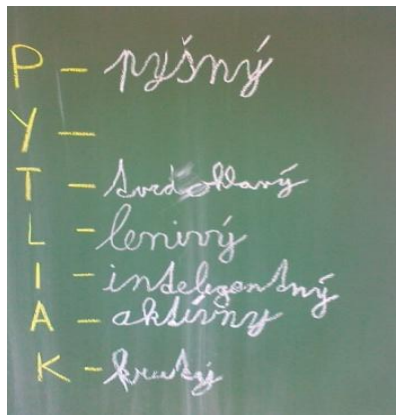 P - pyšný
Y -
T - tvrdohlavý
L - lenivý
I - inteligentný
A - aktívny
K - krutý